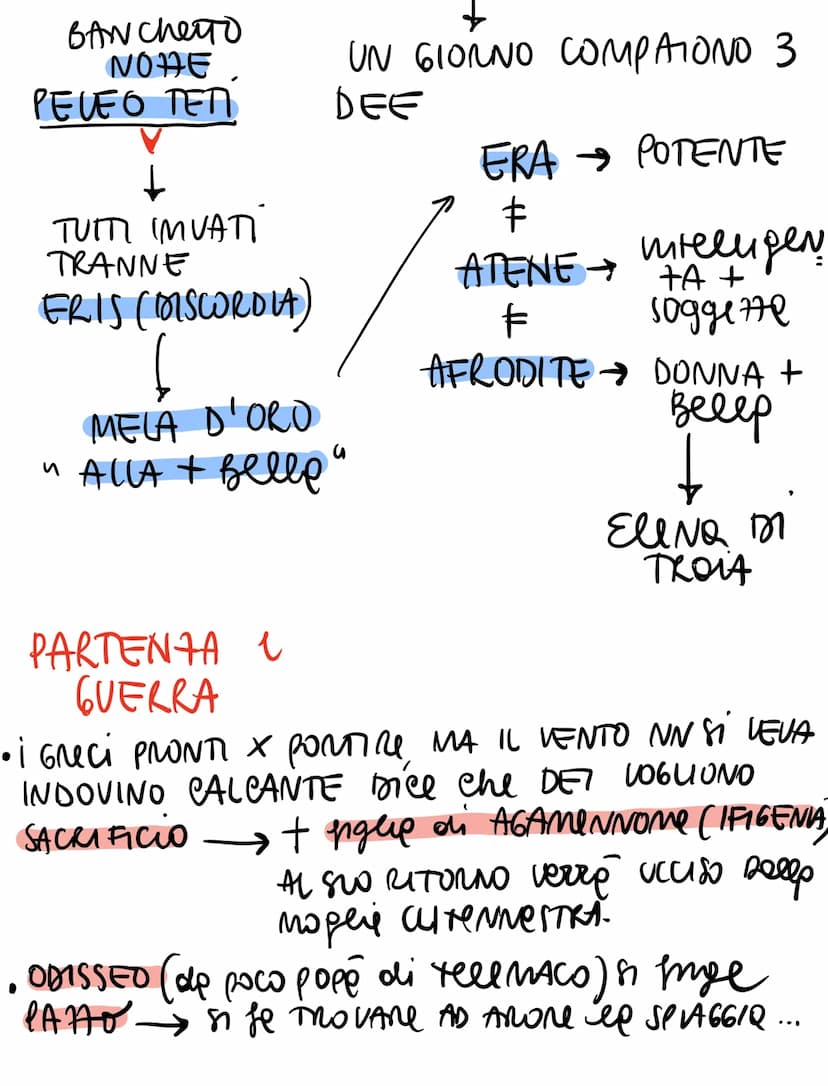 BANCHETTO
NOZZE
PELEO TETI
TUTTI INVITATI
TRANNE
ERIS (DISCORDIA)
MELA D'ORO
"ALLA + BELLA"
UN GIORNO COMPAIONO 3
DEE
ERA → POTENTE
≠
ATENE → INTELLIGEN
TA +
SOGGETTE
≠
AFRODITE → DONNA +
BELLA
ELENA DI
TROIA
PARTENZA E
GUERRA
• i GRECI PRONTI X PARTIRE, MA IL VENTO NN SI LEVA
INDOVINO CALCANTE DICE CHE DEI VOGLIONO
SACRIFICIO → + figlia di AGAMENNONE (IFIGENIA)
AL SUO RITORNO VERRÀ UCCISO DALLA
MOGLIE CLITENNESTRA.
• ODISSEO (da poco papà di TELEMACO) si finge
PAZZO → si fa TROVARE AD ARARE LA SPIAGGIA ...